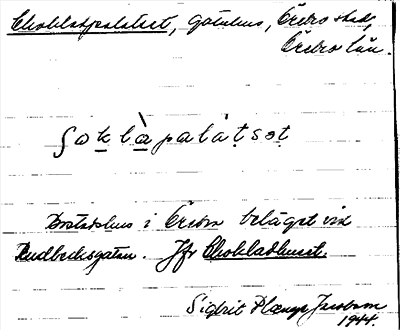 Chokladpalatset, gårdhus, Örebro stad,
Örebro län.
ʃokla̠palátsət
Bostadshus i Örebro beläget vid
Rudbecksgatan. Jfr Chokladhuset.
Sigbrit Plænge Jacobson
1944.